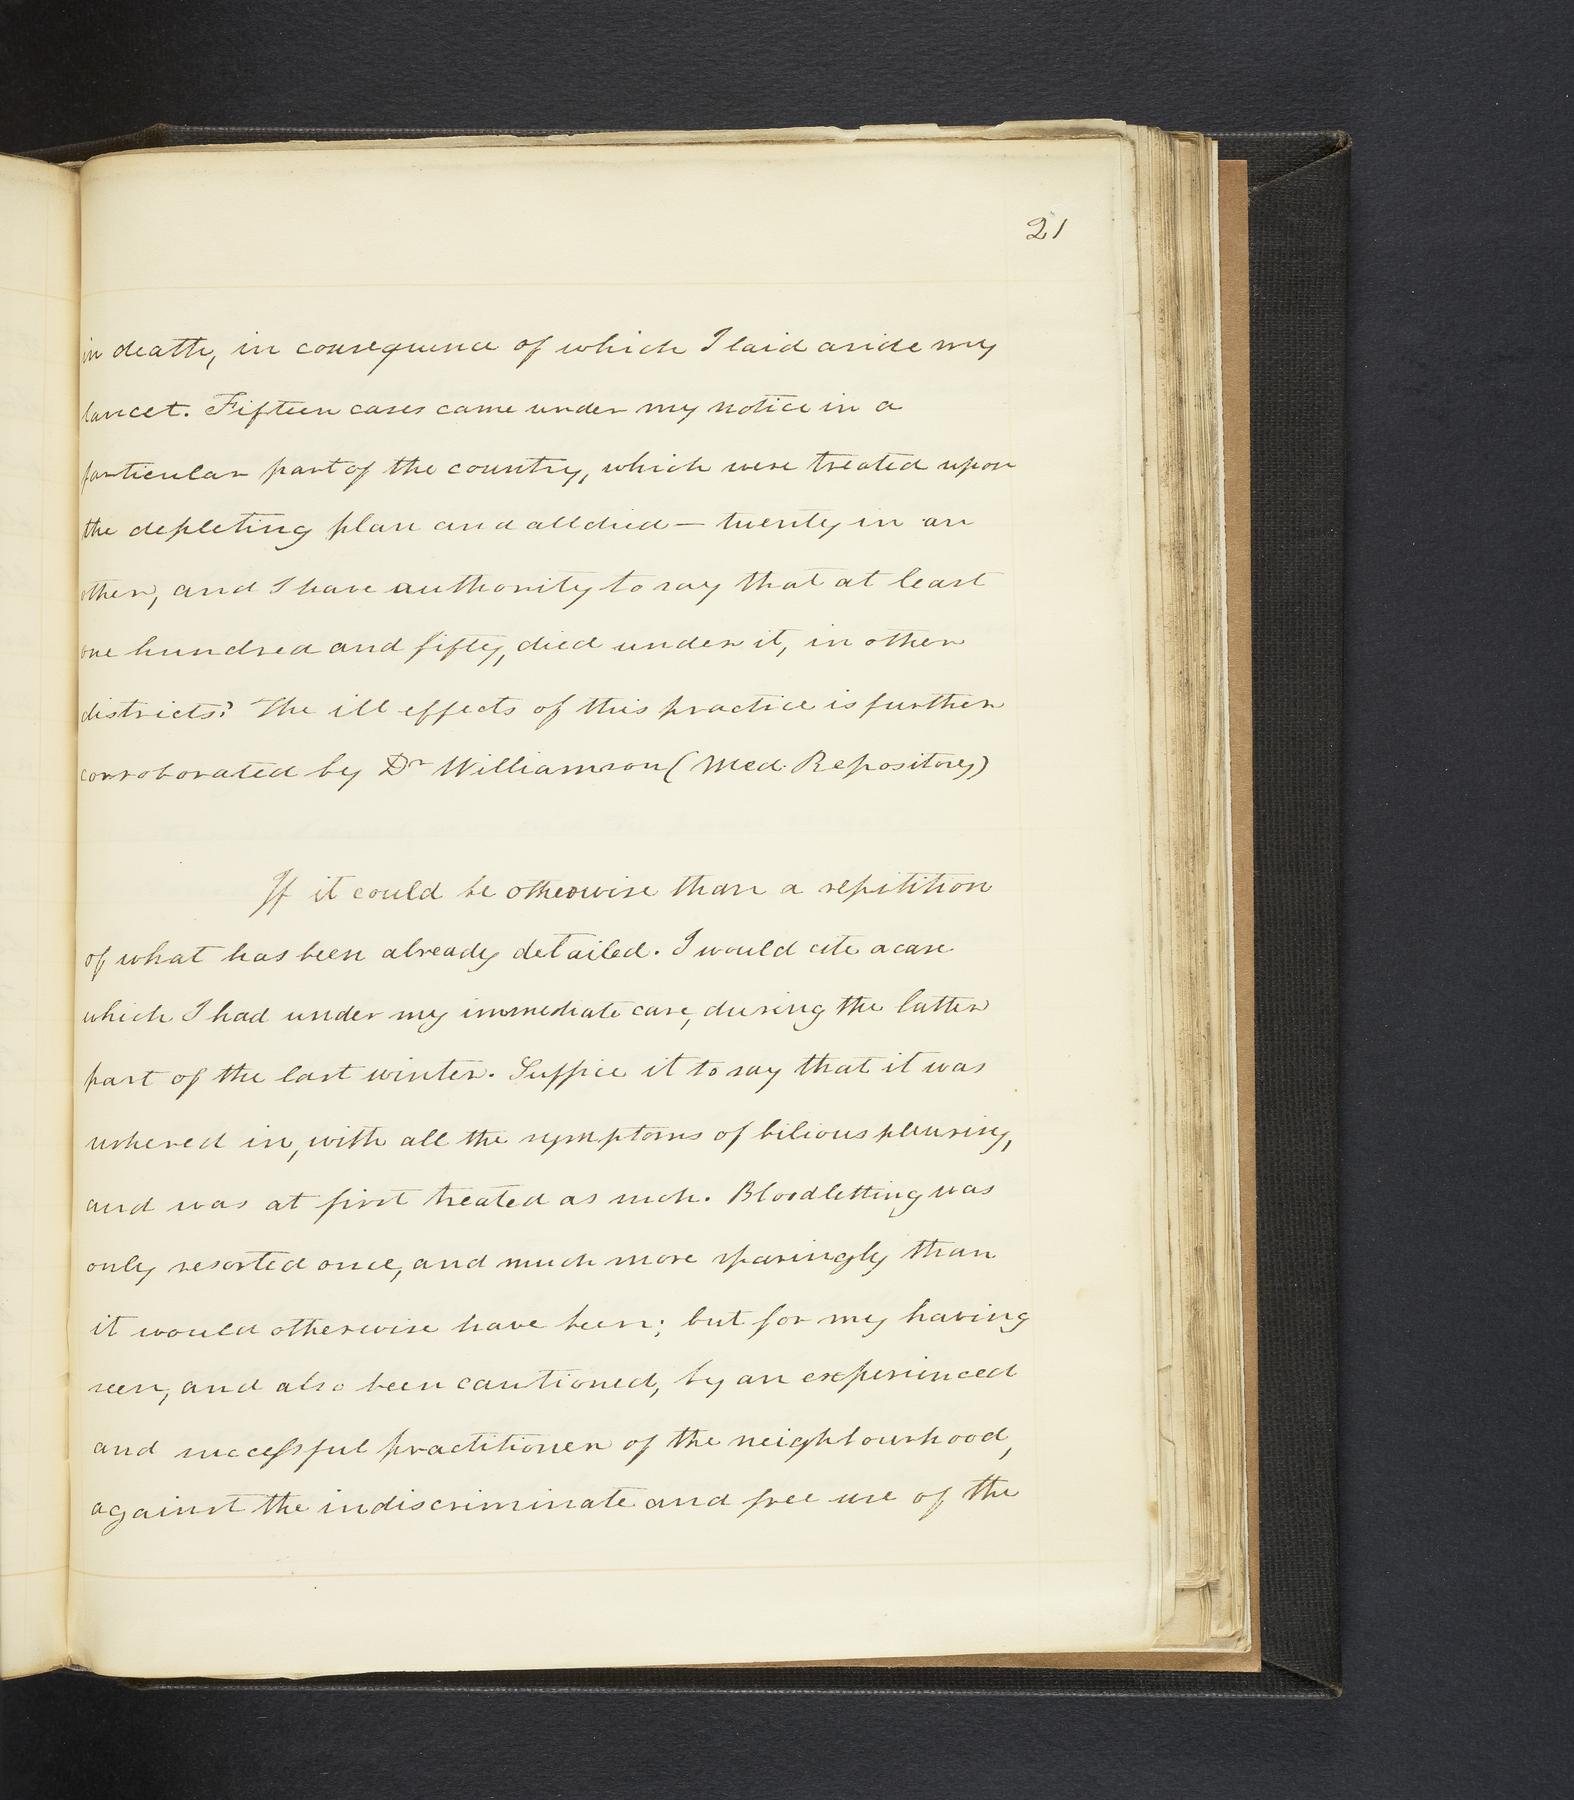 21
in death, in consequence of which I laid aside my
lancet. Fifteen cases came under my notice in a
particular part of the country, which were treated upon
the depleting plan and all died — twenty in an
other, and I have authority to say that at least
one hundred and fifty, died under it, in other
districts? The ill effects of this practice is further
corroborated by Dr Williamson (Med. Repository)
If it could be otheowise than a repitition
of what has been already detailed. I would cite a case
which I had under my immediate care, during the latter
part of the last winter. Suffice it to say that it was
ushered in, with all the symptoms of bilious pleurisy,
and was at first treated as such. Bloodletting was
only resorted once, and much more sparingly than
it would otherwise have been; but for my having
seen, and also been cautioned, by an experienced
and successful practitioner of the neighbourhood,
against the indiscriminate and free use of the